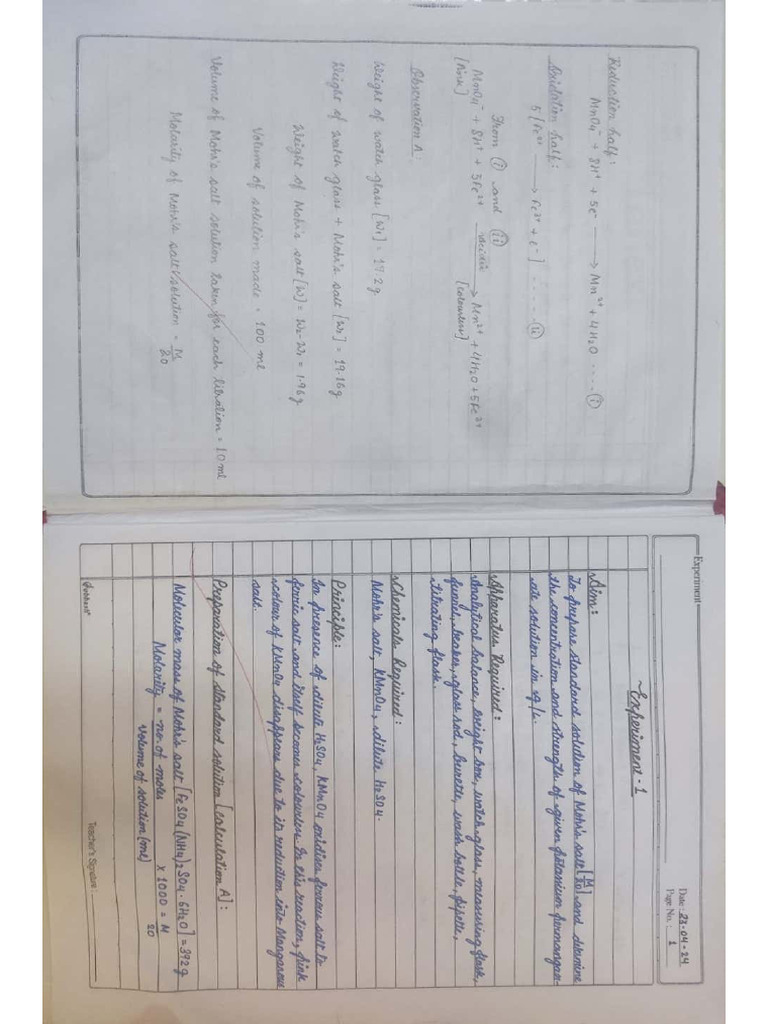 Reduction half:
MnO4⁻ + 8H⁺ + 5e⁻ ⟶ Mn²⁺ + 4H2O ---- (i)
Oxidation half:
5[Fe²⁺ ⟶ Fe³⁺ + e⁻] ----- (ii)
From (i) and (ii)
MnO4⁻ + 8H⁺ + 5Fe²⁺ acidic ⟶ Mn²⁺ + 4H2O + 5Fe³⁺
[Pink] [Colourless]
Observation A:
Weight of watch glass [W1] = 17.2g
Weight of watch glass + Mohr's salt [W2] = 19.16g
Weight of Mohr's salt [W] = W2-W1 = 1.96g
Volume of solution made = 100 ml
Volume of Mohr's salt solution taken for each titration = 10 ml
Molarity of Mohr's salt solution = M/20
Experiment
Date: 23-04-24
Page No.: 1
~Experiment-1
Aim:
To prepare standard solution of Mohr's salt [M/20] and determine
the concentration and strength of given potassium permangan-
ate solution in g/L.
Apparatus Required:
Analytical balance, weight box, watch glass, measuring flask,
funnel, beaker, glass rod, burette, wash bottle, pipette,
titrating flask.
Chemicals Required:
Mohr's salt, KMnO4, dilute H2SO4.
Principle:
In presence of dilute H2SO4, KMnO4 oxidises ferrous salt to
ferric salt and itself becomes colourless. In this reaction, pink
colour of KMnO4 disappears due to its reduction into Manganous
salt.
Preparation of standard solution [Calculation A]:
Molecular mass of Mohr's salt [FeSO4(NH4)2SO4·6H2O] = 392g
Molarity = no. of moles / Volume of solution (ml) x 1000 = M/20
Teacher's Signature: